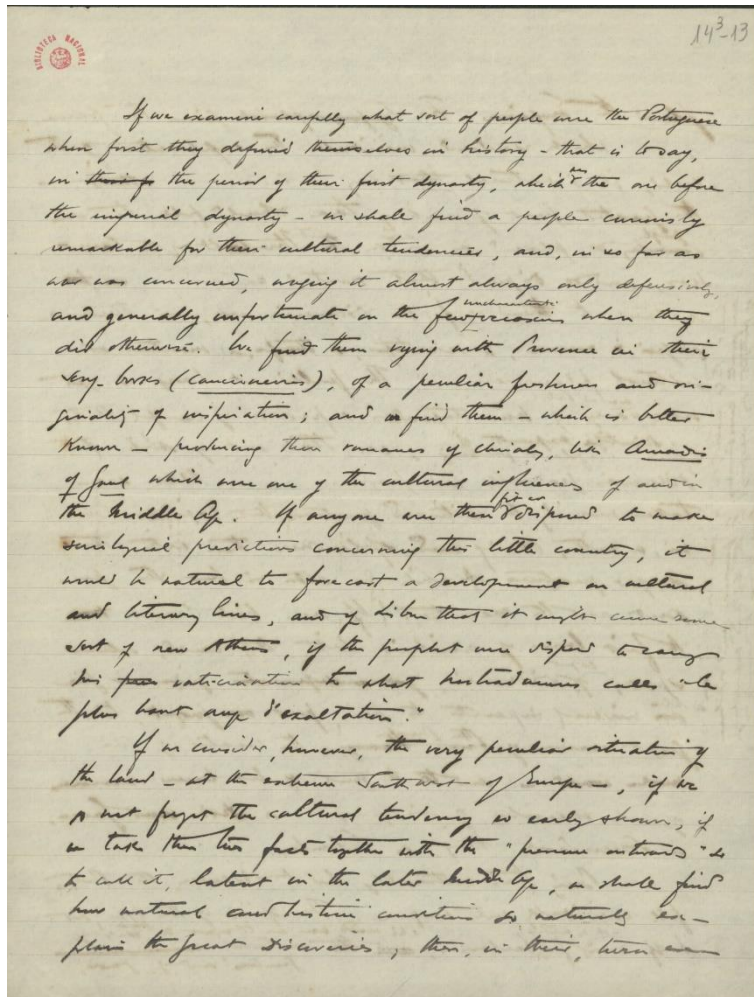 14³-13
BIBLIOTECA NACIONAL
If we examine carefully what sort of people were the Portuguese
when first they defined themselves in history - that is to say,
in the period of their first dynasty, which was the one before
the imperial dynasty - we shall find a people curiously
remarkable for their cultural tendencies, and, in so far as
war was concerned, waging it almost always only defensively,
and generally unfortunate on the few occasions when they
did otherwise. We find them vying with Provence in their
song-books (cancioneiros), of a peculiar freshness and ori-
ginality of inspiration; and we find them - which is better
known - producing those romances of chivalry, like Amadis
of Gaul which were one of the cultural influences of and in
the Middle Age. If anyone were then disposed to make
sociological predictions concerning this little country, it
would be natural to forecast a development on cultural
and literary lines, and of Lisbon that it might become some
sort of new Athens, if the prophet were disposed to carry
his vaticination to what Nostradamus calls "le
plus haut d'exaltation."
If we consider, however, the very peculiar situation of
the land - at the extreme Southwest of Europe -, if we
do not forget the cultural tendency so early shown, if
we take these two facts together with the "pressure outwards" so
to call it, latent in the later Middle Age, we shall find
how natural and historic conditions so naturally ex-
plain the great Discoveries; these, in their, turn